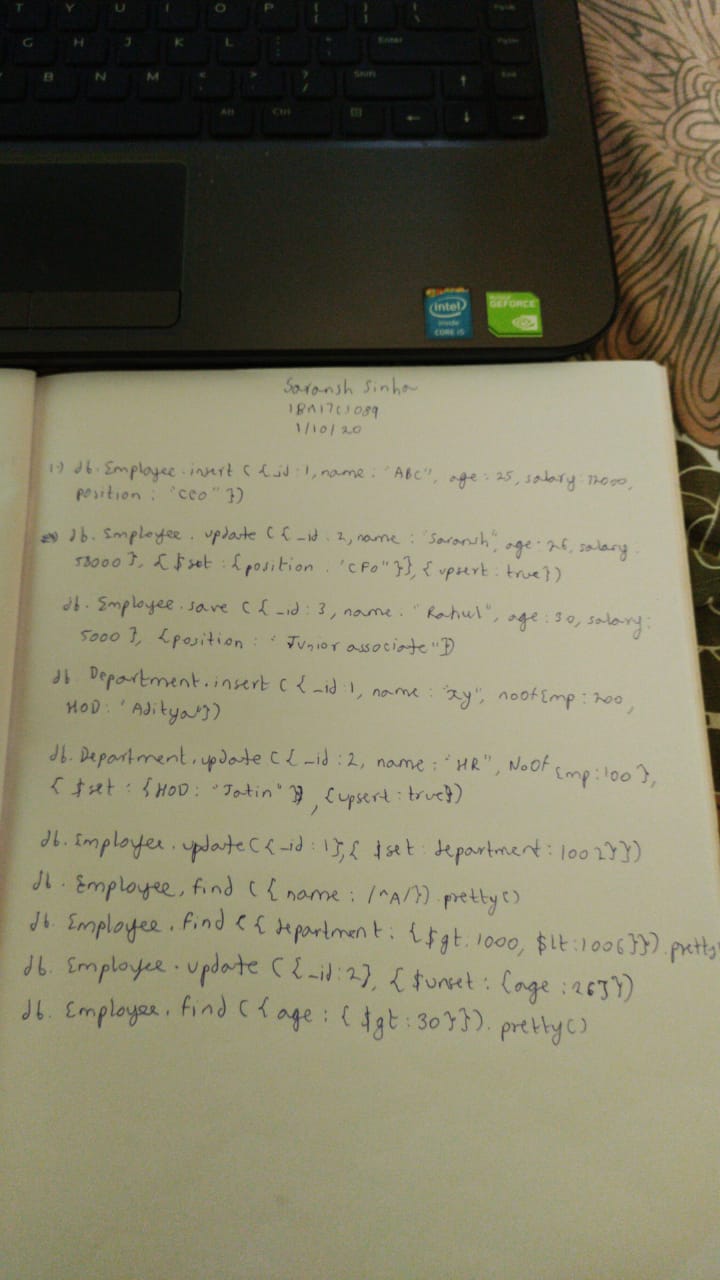 T Y U I O P { } | PgUp
G H J K L : " Enter PgDn
B N M < > ? Shift ↑ End
/
Alt Ctrl ← ↓ →
intel
inside
CORE i5
GEFORCE
Saransh Sinha
1/10/20
1) db.Employee.insert({_id:1, name: "ABC", age: 25, salary: 72000,
position: "CEO"})
db.Employee.update({_id: 2, name: "Saransh", age: 26, salary:
58000}, {$set: {position: "CFO"}}, {upsert: true})
db.Employee.save({_id: 3, name: "Rahul", age: 30, salary:
5000}, {position: "Junior associate"})
db.Department.insert({_id:1, name: "xy", noofEmp: 200,
HOD: "Aditya"})
db.Department.update({_id:2, name: "HR", NoOf Emp:100},
{$set: {HOD: "Jatin"}}, {upsert: true})
db.Employee.update({_id:1},{$set: department: 1002}})
db.Employee.find({name: /^A/}).pretty()
db.Employee.find({department: {$gt: 1000, $lt:1006}}).pretty
db.Employee.update({_id:2}, {$unset: {age:26}})
db.Employee.find({age: {$gt:30}}).pretty()